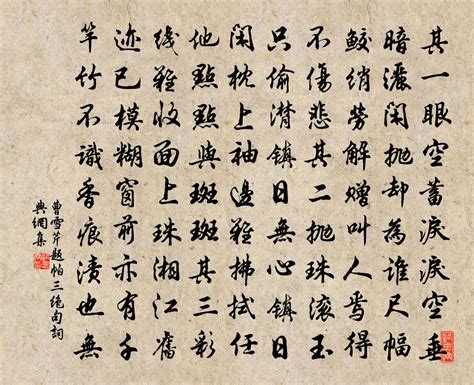 其一眼空蓄淚淚空垂
暗灑閑拋却為誰尺幅
鮫綃勞解贈叫人焉得
不傷悲其二拋珠滾玉
只偷潸鎮日無心鎮日
閑枕上袖邊難拂拭任
他點點與斑斑其三彩
綫難收面上珠湘江舊
迹已模糊窗前亦有千
竿竹不識香痕漬也無
曹雪芹題帕三绝句詞
典網集